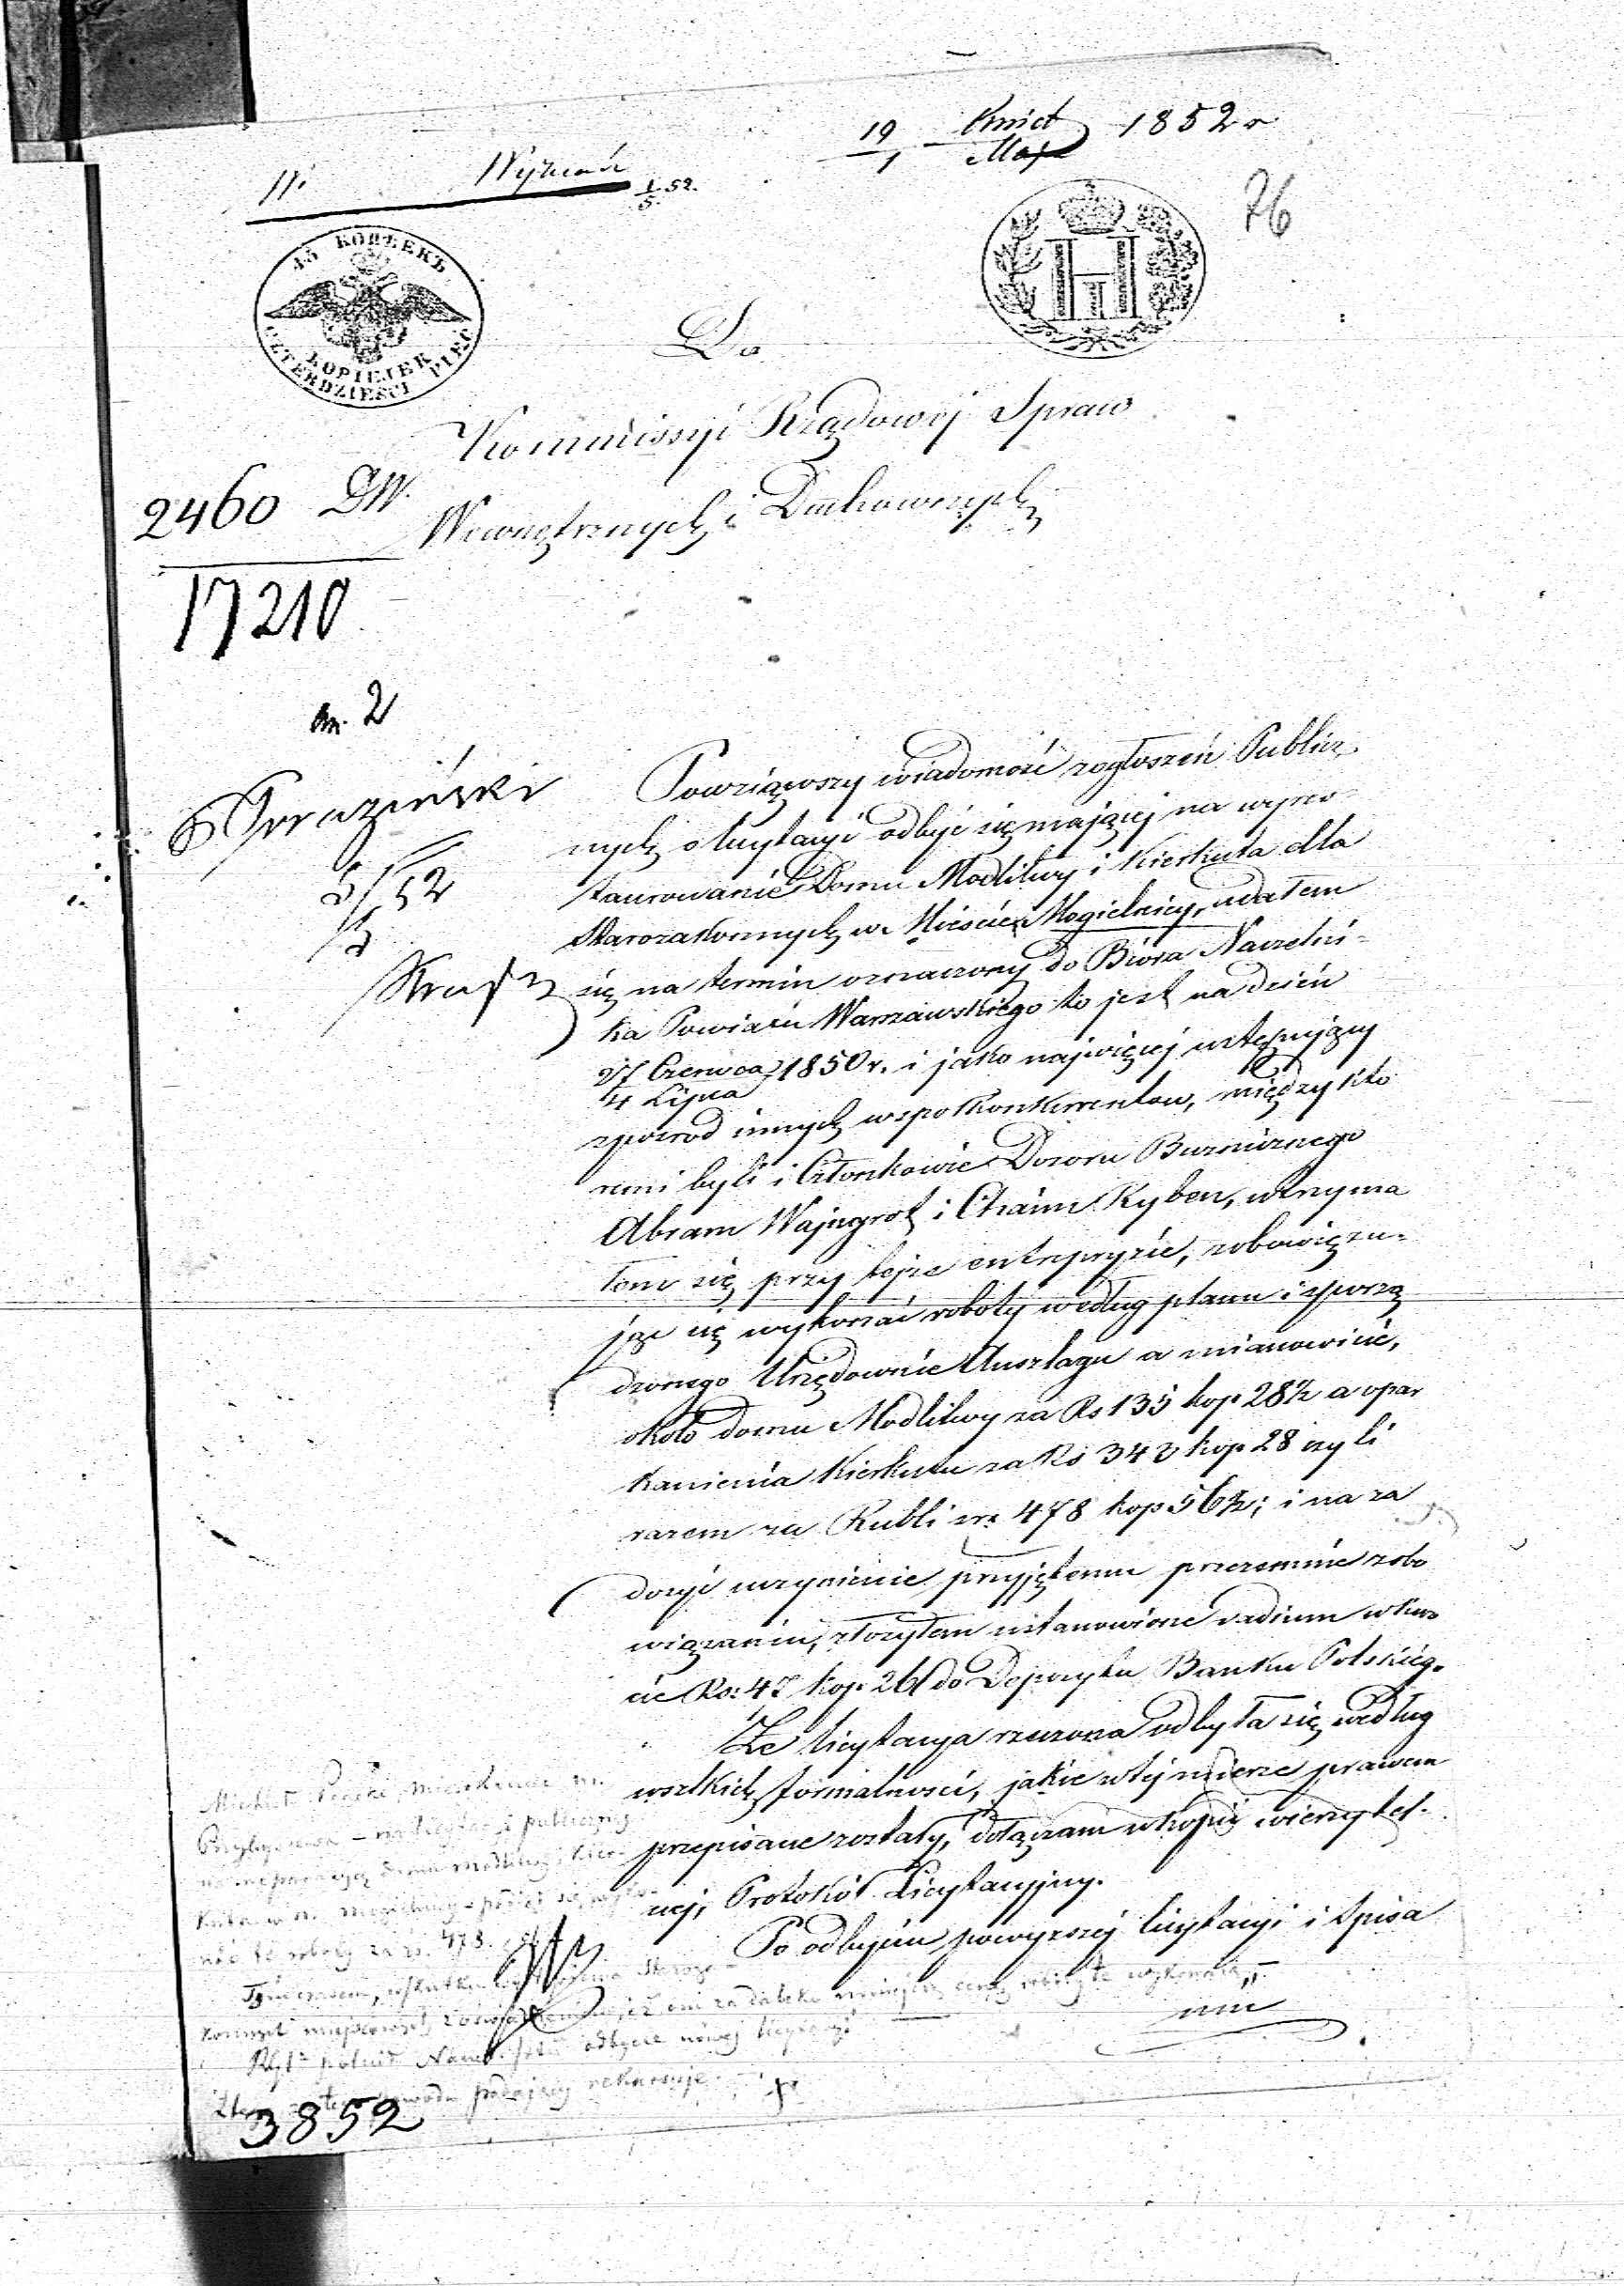 19 Kwiet 1852 r
1 Maja
W. Wyznań
1/5 52.
76
45 КОПѢЕКЪ
KOPIEJEK
CZTERDZIEŚCI PIĘĆ
H I
Do
Kommissyi Rządowej Spraw
Wewnętrznych i Duchownych
2460 DW.
17210
an. 2
Powziąwszy wiadomość z ogłoszeń Publicz
nych o licytacyi odbyć się mającej na wyres-
taurowanie Domu Modlitwy i Kierkuta dla
Starozakonnych w Mieście Mogielnicy, udałem
się na termin oznaczony do Bióra Naczelni-
ka Powiatu Warszawskiego to jest na dzień
27 Czerwca
4 Lipca 1850 r. i jako najwięcej ustępujący
z pośrod innych wspołkonkurentow, między któ
remi byli i Członkowie Dozoru Bużnicznego
Abram Wajngrot i Chaim Ryben, utrzyma
łem się przy tejże entrepryzie, zobowięzu-
jąc się wykonać roboty według planu i sporzą
dzonego Urzędownie Anszlagu a mianowicie,
około domu Modlitwy za Rs 135 kop 28½ a opar
kanienia Kierkutu za Rs 343 kop 28 czyli
razem za Rubli sr: 478 kop 56½; i na za
dosyć uczynienie przyjętemu przezemnie zobo
wiązaniu, złożyłem ustanowione vadium w kwo
cie Rs: 47 kop. 26 do Depozytu Banku Polskiego
Że licytacya rzeczona odbyła się według
wszelkich formalności, jakie w tej mierze prawem
przepisane zostały, dołączam w kopii wierzytel-
nej, Protokół Licytacyjny.
Po odbyciu powyższej licytacyi i spisa
niu
Michał mieszkaniec m.
licytacyi publicznej
Domu modlitwy i Kier-
kuta w m. Mogielnicy podjął się wyko-
nać te roboty za rs. 478.
Tymczasem, wskutek
miejscowych za daleko mniejszą cenę roboty te wykonają,
polecił odbycie nowej licytacyi
podający rekursuje.
3852